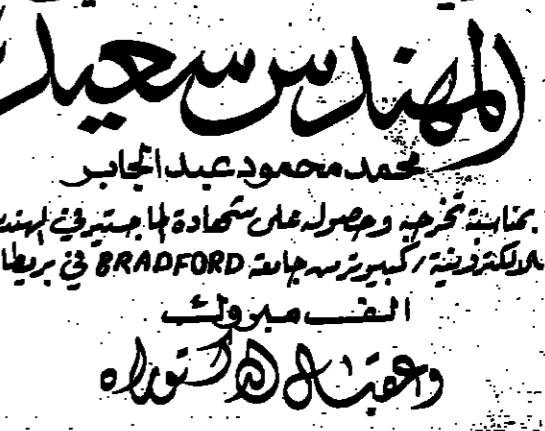 المهندس سعيد
محمد محمود عبد الجابر
بمناسبة تخرجه وحصوله على شهادة الماجستير في الهندس
الالكترونية / كمبيوتر من جامعة BRADFORD في بريطا
الف مبروك
وعقبال الدكتوراه